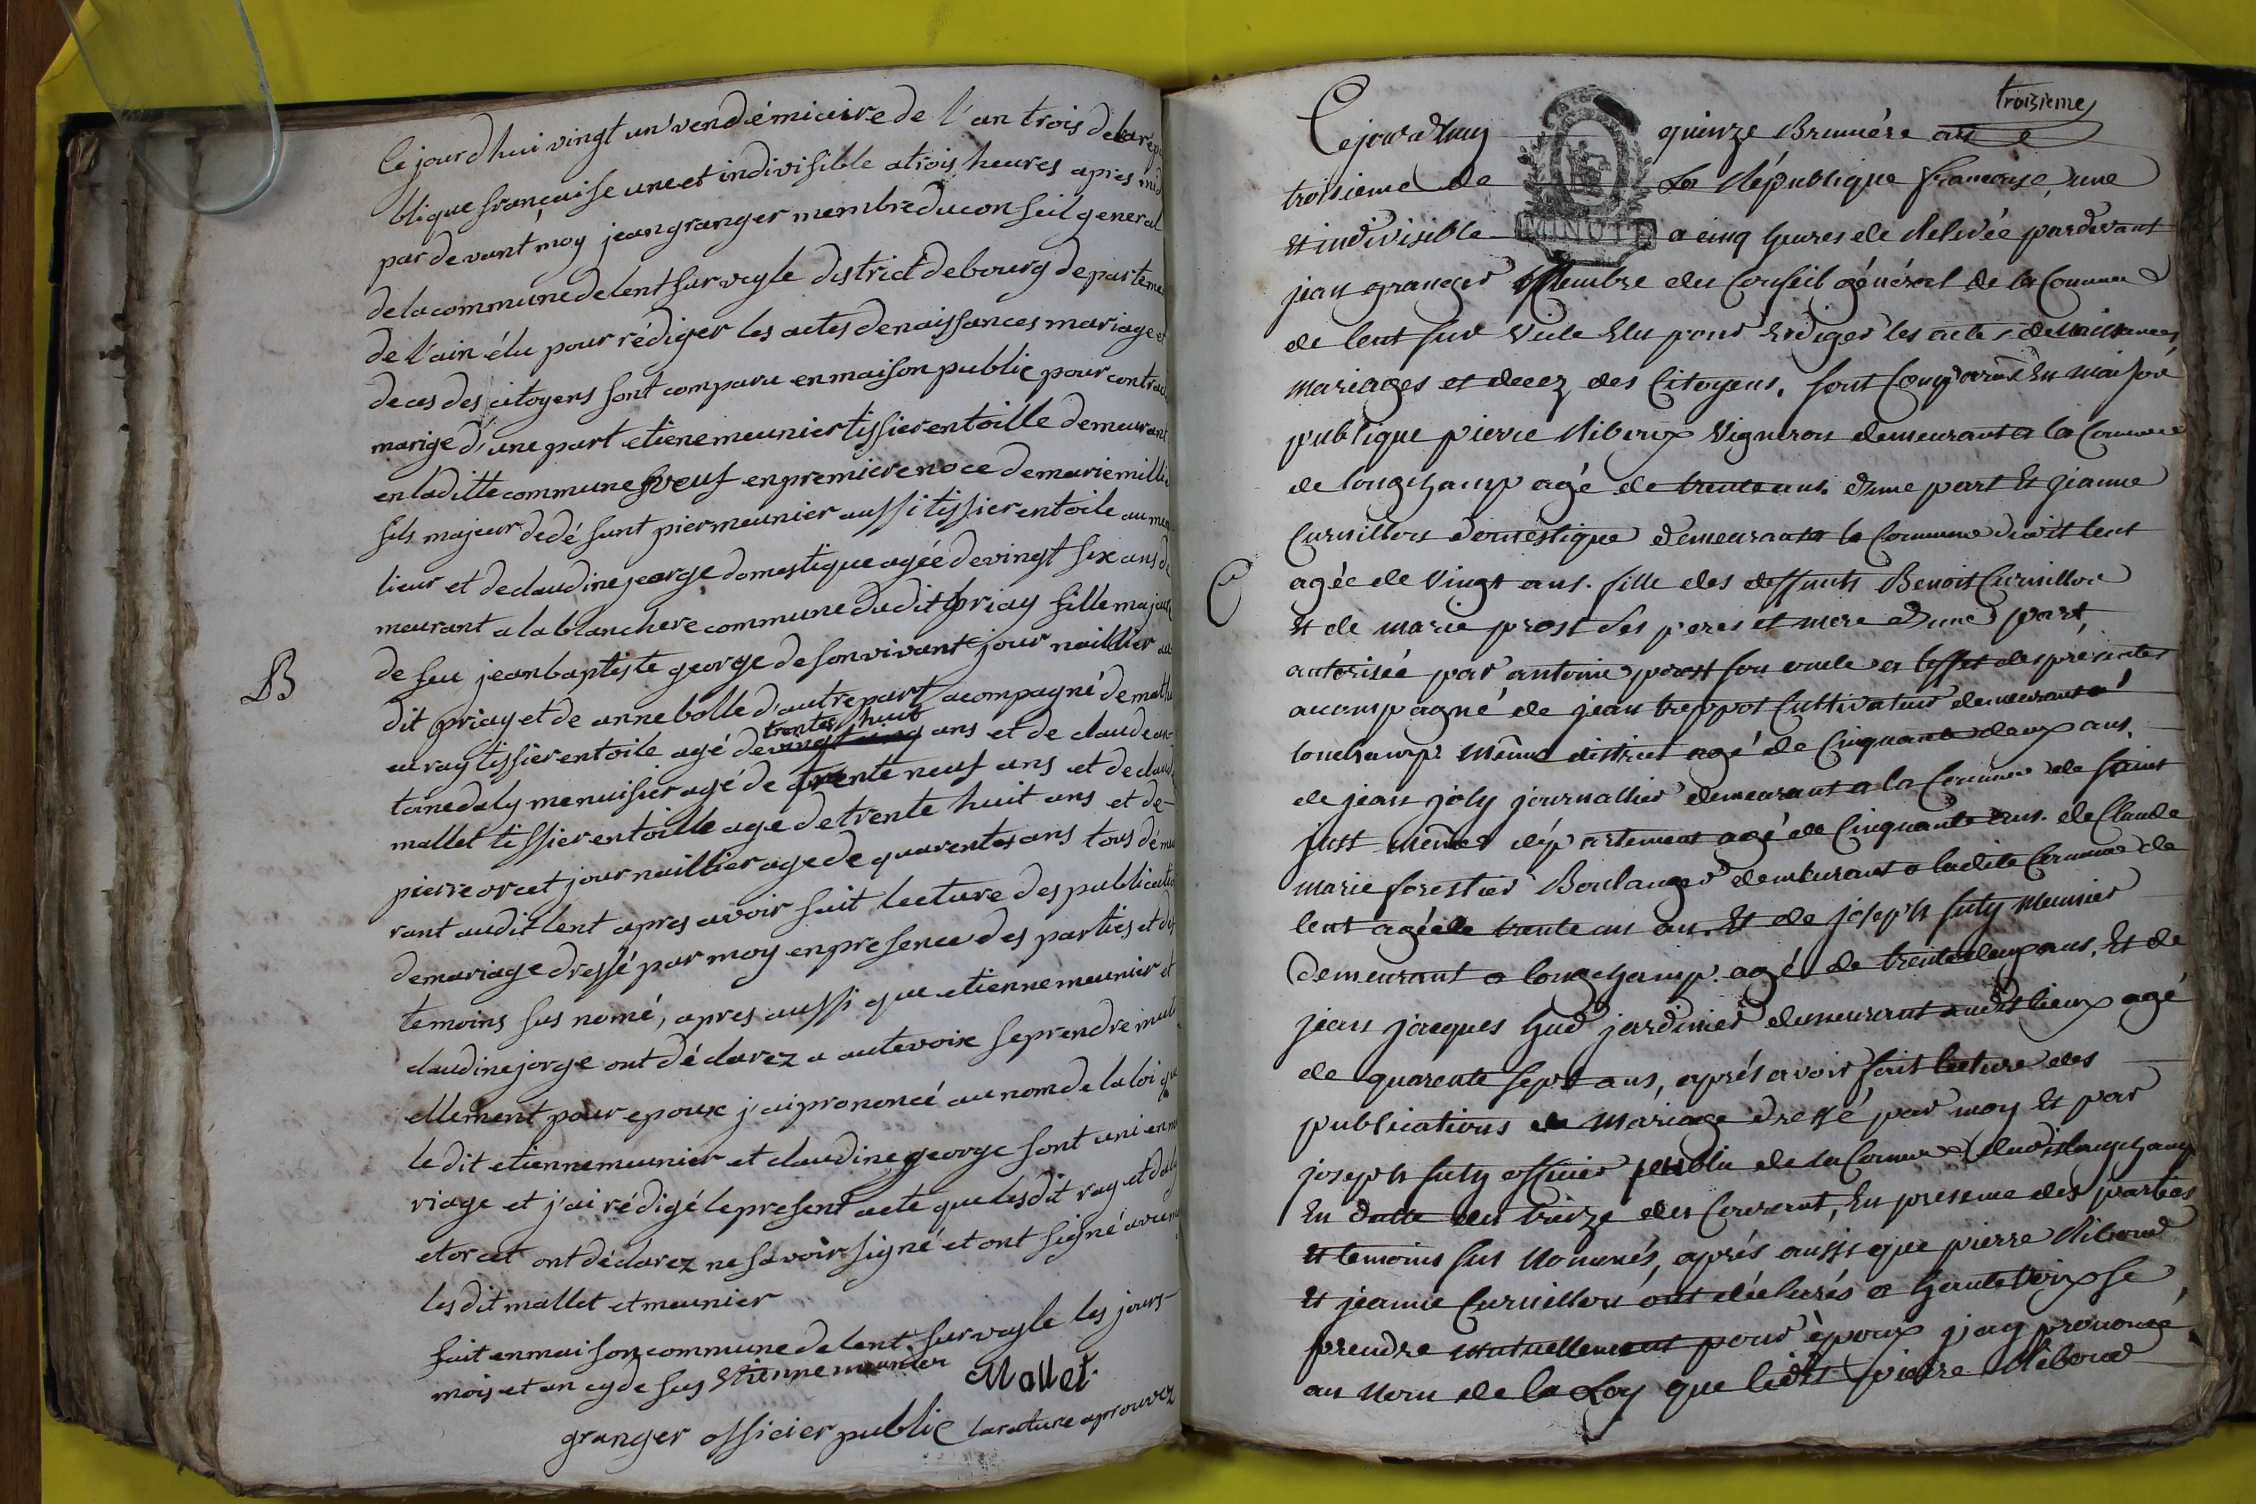 Ce jourdhui vingt un vendémiaire de l'an trois de la repu
blique française une et indivisible a trois heures apres mid
par devant moy jean granger membre du conseil general
de la commune de lent sur veyle district de bourg departeme
de l'ain élu pour rédiger les actes de naissances mariage et
deces des citoyens sont comparu en maison public pour contrac
marige d'une part etiene meunier tissier en toille demeurant
en laditte commune veuf en premiere noce de marie millie
fils majeur de défunt pier meunier aussi tissier en toile au me
lieux et de claudine jeorge domestique agée de vingt six ans de
meurant a la blanchere commune dudit priay fille majeur
de feu jean baptiste george de son vivant journaillier au
B
dit priay et de anne bolle d'autre part acompagné de mathi
eu ray tissier en toile agé de trentes huit ans et de claude an
toine daly menuisier agé de trente neuf ans et de claud
mallet tissier en toille age de trente huit ans et de
pierre orcet journaillier age de quarentes ans tous deme
rant audit lent apres avoir fait lecture des publicatio
de mariage dressé par moy en presence des parties et des
temoins sus nomé, apres aussi que etienne meunier et
claudine jorge ont déclarez a aute voix se prendre mutu
ellement pour epoux j'ai prononcé au nom de la loi que
le dit etienne meunier et claudine george sont uni en ma
riage et j'ai rédigé le present acte que les dit ray et daly
et orcet ont déclarez ne savoir signé et ont signé avec
les dit mallet et meunier
fait en maison commune de lent sur veyle les jours
mois et an cy desus Etienne meunier Mallet
granger officier public la rature aprouvez
troisieme
Cejourdhuy quinze Brumére an
troisieme de La République francoise, une
et indivisible a cinq heures de Relevée pardevant
MINUTE
jean granger Membre du Conseil général de la Commune
de lent sur veile Elu pour Rédiger les actes de Naissances
Mariages et decez des Citoyens. sont Comparus En Maison
publique pierre Riboux Vigneron demeurant a la Commune
de longchamp agé de trente ans. d'une part Et jeanne
Curnillon domestique demeurant a la Commune dudit lent
C
agée de vingt ans. fille des deffunts Benoit Curnillon
Et de marie prost ses peres et mere d'une part,
autorisée par antoine prost son oncle a leffet des presentes
acompagné de jean treppot Cultivateur demeurant a
lonchamp Même district agé de Cinquante deux ans.
de jean joly journallier demeurant a la Commune de saint
just même département agé de Cinquante ans. de Claude
marie forestier Boulanger demeurant a ladite Commune de
lent agé de trente un an. Et de joseph futy Meunier
demeurant a longchamp agé de trente deux ans. Et de
jean jacques hud jardinier demeurant audit lieux agé
de quarente sept ans, aprés avoir fait lecture des
publications de Mariage dressé par moy Et par
joseph futy officier publie de la Commune dudit longchamp
En datte du treize du Courant, En presence des parties
Et temoins sus Nommés, aprés aussi que pierre Riboud
Et jeanne Curnillon ont déclarés a haute Voix se
prendre Mutuellement pour époux j'ay prononcé
au Nom de la Loy que ledit pierre Riboud